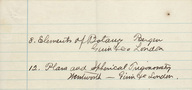 8. Elements of Botany Bergen
Ginn & Co London
12. Plane and Spherical Trigonometry
Wentworth — Ginn & Co London.